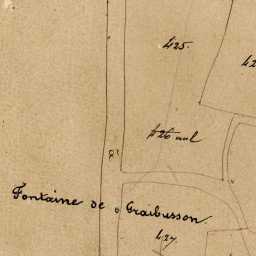 425.
42
426
Fontaine de Graibusson.
427